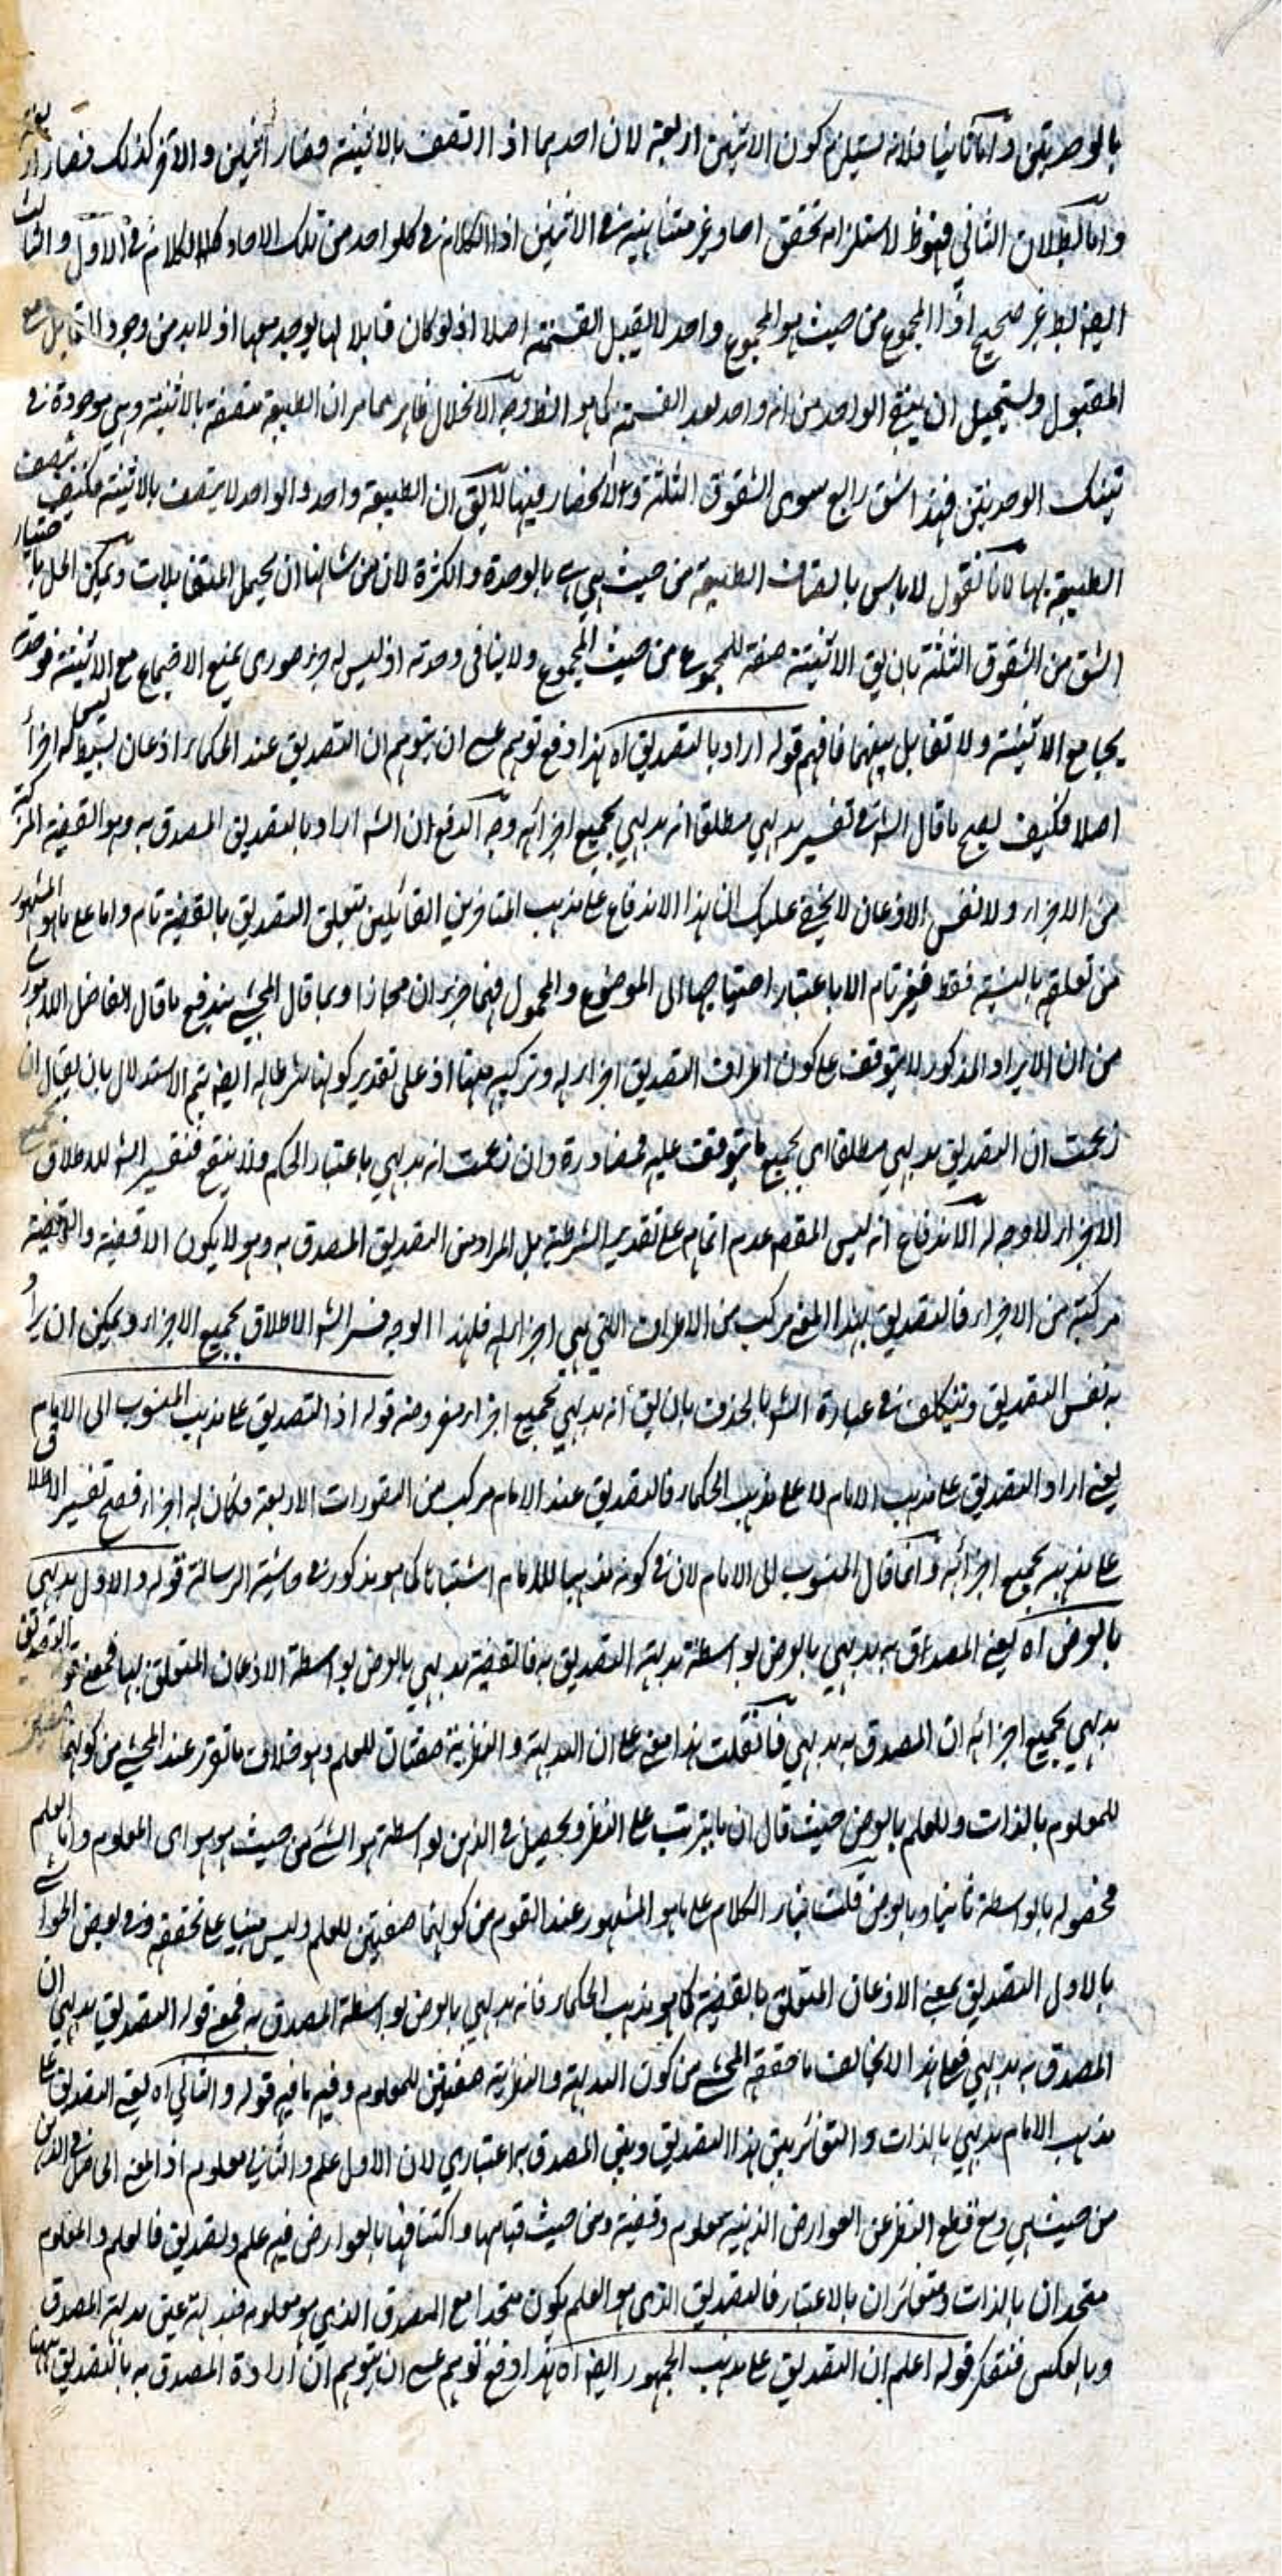 بالوحدتين وأما ثانيا فلانه يستلزم كون الاثنين اربعة لان احدهما اذا اتصف بالاثنينية فصار اثنين والآخر كذلك فصار اربعة
وأما بطلان الثاني فهوظ لاستلزامه تحقق احاد غير متناهية في الاثنين اذا الكلام في كلواحد من تلك الاحاد كالكلام في الاول والثالث
ايضا بط غير صحيح اذ المجموع من حيث هو المجموع واحد لا يقبل القسمة اصلا اذ لو كان قابلا لها يوجد معها اذ لابد من وجود القابل مع
المقبول ويستحيل ان يبقى الواحد من انه واحد بعد القسمة كما هو الظ وجه الانحلال ظاهر مما مر ان الطبيعة متصفة بالاثنينية وهي موجودة في
تينك الوحدتين فهذا شق رابع سوى الشقوق الثلثة والانحصار فيها لا يق ان الطبيعة واحد والواحد لا يتصف بالاثنينية فكيف يتصف
الطبيعة بها لانا نقول لاباس باتصاف الطبيعة من حيث هي هي بالوحدة والكثرة لان من شانها ان يحتمل المتقابلات ويمكن الحل باختيار
الشق من الشقوق الثلثة بان يق الاثنينية صفة للمجموع من حيث المجموع ولا ينافى وحدته اذ ليس له جزء صورى يمنع الاجتماع مع الاثنينية فوحدته
يجامع الاثنينية ولا تقابل بينهما فافهم قوله اراد بالتصديق اه هذا دفع توهم عسى ان يتوهم ان التصديق عند الحكماء اذعان بسيط ليس له اجزاء
اصلا فكيف يصح ما قال الش في تفسير بديهي مطلقا انه بديهي بجميع اجزائه وجه الدفع ان الش اراد بالتصديق المصدق به وهو القضية المركبة
من الاجزاء ولا نفس الاذعان لا يخفى عليك ان هذا الاندفاع على مذهب المتاخرين القائلين بتعلق التصديق بالقضية تام واما على ما هو المشهور
من تعلقه بالنسبة فقط فغير تام الا باعتبار احتياجها الى الموضوع والمحمول فهما جزءان مجازا وبما قال المحشي يندفع ما قال الفاضل اللاهورى
من ان الايراد المذكور لا يتوقف على كون اطراف التصديق اجزاء له وتركيبه منها اذ على تقدير كونها شرطا له ايضا يتم الاستدلال بان يقال ان
زعمت ان التصديق بديهي مطلقا اي بجميع ما يتوقف عليه فمصادرة وان زعمت انه بديهي باعتبار الحكم فلا ينفع فتفسير الش للاطلاق بجميع
الاجزاء لا وجه له الاندفاع انه ليس المقصد عدم اتمامه على تقدير الشرطية بل المراد من التصديق المصدق به وهو لا يكون الا قضية والقضية
مركبة من الاجزاء فالتصديق بهذا المعنى مركب من الاطراف التي هي اجزاء له فلهذا الوجه فسر الش الاطلاق بجميع الاجزاء ويمكن ان يراد
به نفس التصديق ويتكلف في عبارة الش بالحذف بان يق انه بديهي بجميع اجزاء معروضه قوله اذ التصديق على مذهب المنسوب الى الامام
يعني اراد التصديق على مذهب الامام لا على مذهب الحكماء فالتصديق عند الامام مركب من التصورات الاربعة فكان له اجزاء فصح تفسير الاطلاق
على مذهبه بجميع اجزائه وانما قال المنسوب الى الامام لان في كونه مذهبا للامام اشتباها كما هو مذكور في حاشية الرسالة قوله والاول بديهي
بالعرض اه يعني المصدق به بديهي بالعرض بواسطة بديهة التصديق به فالقضية بديهي بالعرض بواسطة الاذعان المتعلق بها فمعنى قوله التصديق
بديهي بجميع اجزائه ان المصدق به بديهي فان قلت هذا مبنى على ان البديهة والنظرية صفتان للعلم وهو خلاف ما تقرر عند المحشي من كونهما صفتين
للمعلوم بالذات وللعلم بالعرض حيث قال ان ما يترتب على النظر ويحصل في الذهن بواسطته هو الشئ من حيث هو هو اى المعلوم واما العلم
فحصوله بالواسطة ثانيا وبالعرض قلت بناء الكلام على ما هو المشهور عند القوم من كونهما صفتين للعلم وليس مبنيا على تحقيقه وفي بعض الحواشي
بالاول التصديق بمعنى الاذعان المتعلق بالقضية كما هو مذهب الحكماء فانه بديهي بالعرض بواسطة المصدق به فمعنى قوله التصديق بديهي ان
المصدق به بديهي فعلى هذا لا يخالف ما حققه المحشي من كون البديهة والنظرية صفتين للمعلوم وفيه ما فيه قوله والثاني اه يعني التصديق على
مذهب الامام بديهي بالذات والتغائر بين هذا التصديق وبين المصدق به اعتباري لان الاول علم والثاني معلوم اذ المعنى الحاصل في الذهن
من حيث هي ومع قطع النظر عن العوارض الذهنية معلوم وقضية ومن حيث قيامها واكتنافها بالعوارض فيه علم وتصديق فالعلم والمعلوم
متحدان بالذات ومتغائران بالاعتبار فالتصديق الذى هو العلم يكون متحدا مع المصدق الذي هو معلوم فبديهته عين بديهة المصدق
وبالعكس فتفكر قوله اعلم ان التصديق على مذهب الجمهور ايضا اه هذا دفع توهم عسى ان يتوهم ان ارادة المصدق به بالتصديق ههنا